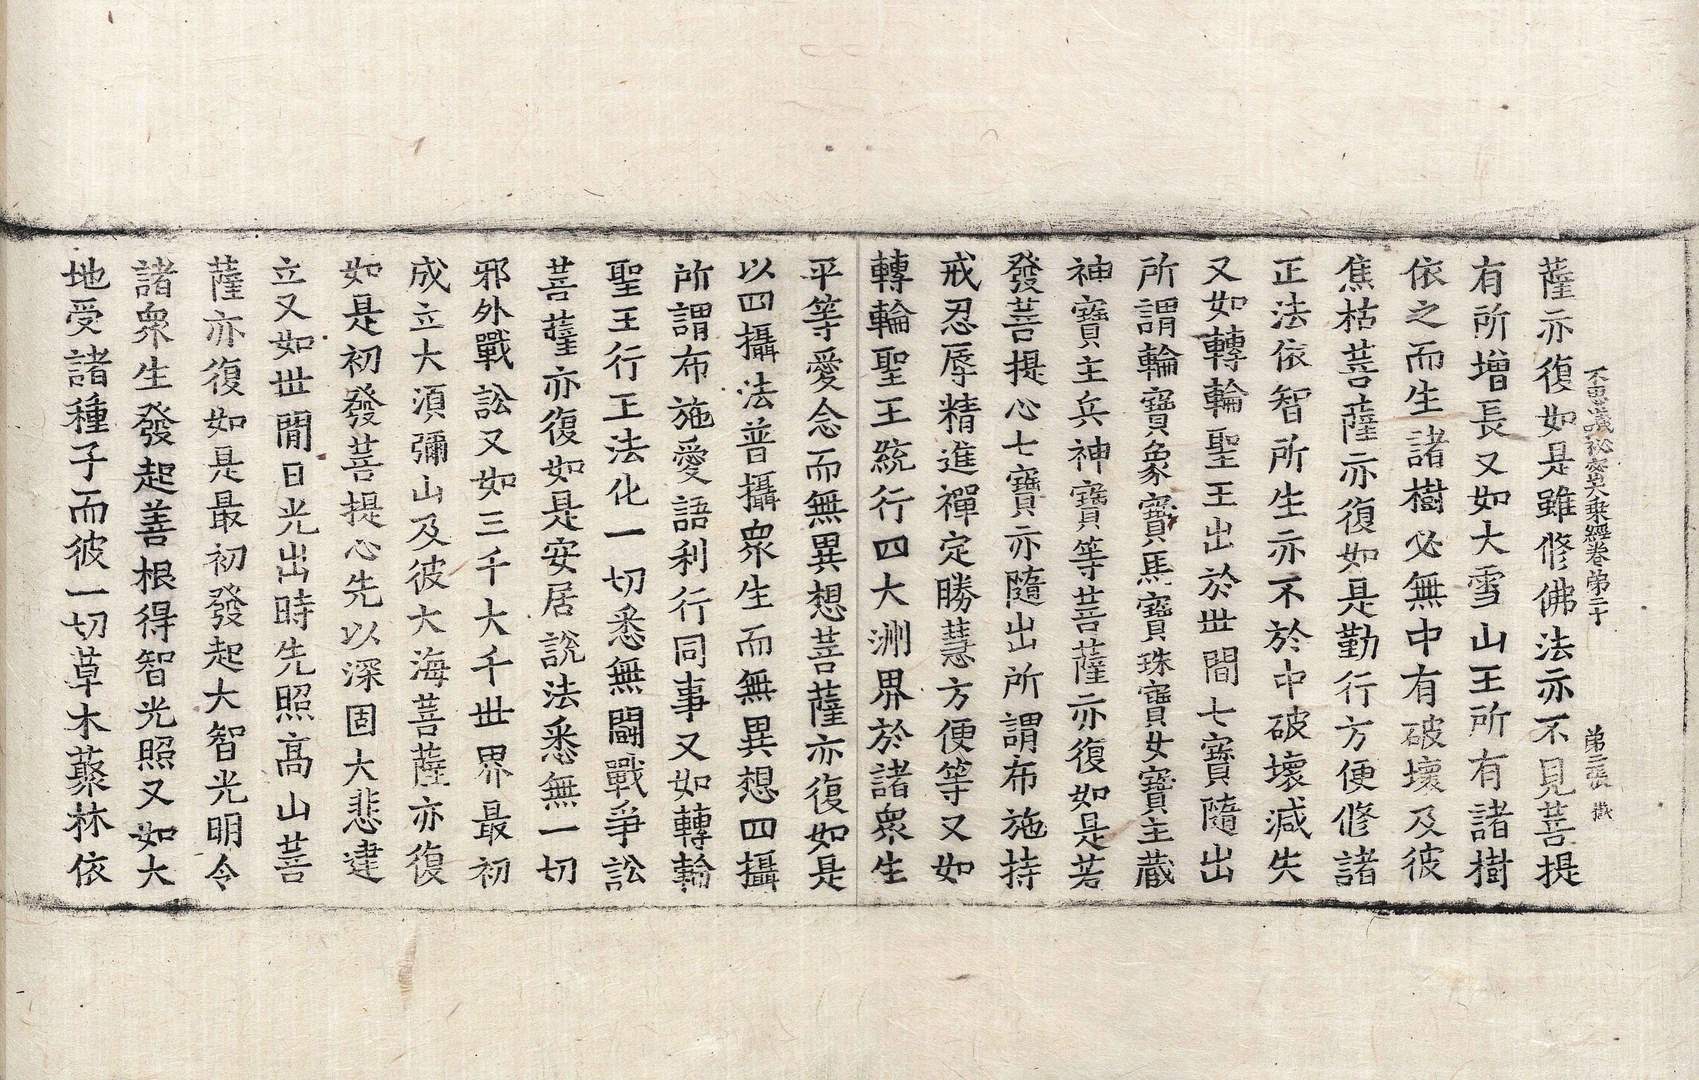 不思議祕密大乘經卷第二十 第三張 徵
薩亦復如是雖修佛法亦不見菩提
有所增長又如大雪山王所有諸樹
依之而生諸樹必無中有破壞及彼
焦枯菩薩亦復如是勤行方便修諸
正法依智所生亦不於中破壞減失
又如轉輪聖王出於世間七寶隨出
所謂輪寶象寶馬寶珠寶女寶主藏
神寶主兵神寶等菩薩亦復如是若
發菩提心七寶亦隨出所謂布施持
戒忍辱精進禪定勝慧方便等又如
轉輪聖王統行四大洲界於諸眾生
平等愛念而無異想菩薩亦復如是
以四攝法普攝眾生而無異想四攝
所謂布施愛語利行同事又如轉輪
聖王行正法化一切悉無鬪戰爭訟
菩薩亦復如是安居說法悉無一切
邪外戰訟又如三千大千世界最初
成立大須彌山及彼大海菩薩亦復
如是初發菩提心先以深固大悲建
立又如世間日光出時先照高山菩
薩亦復如是最初發起大智光明令
諸眾生發起善根得智光照又如大
地受諸種子而彼一切草木藂林依